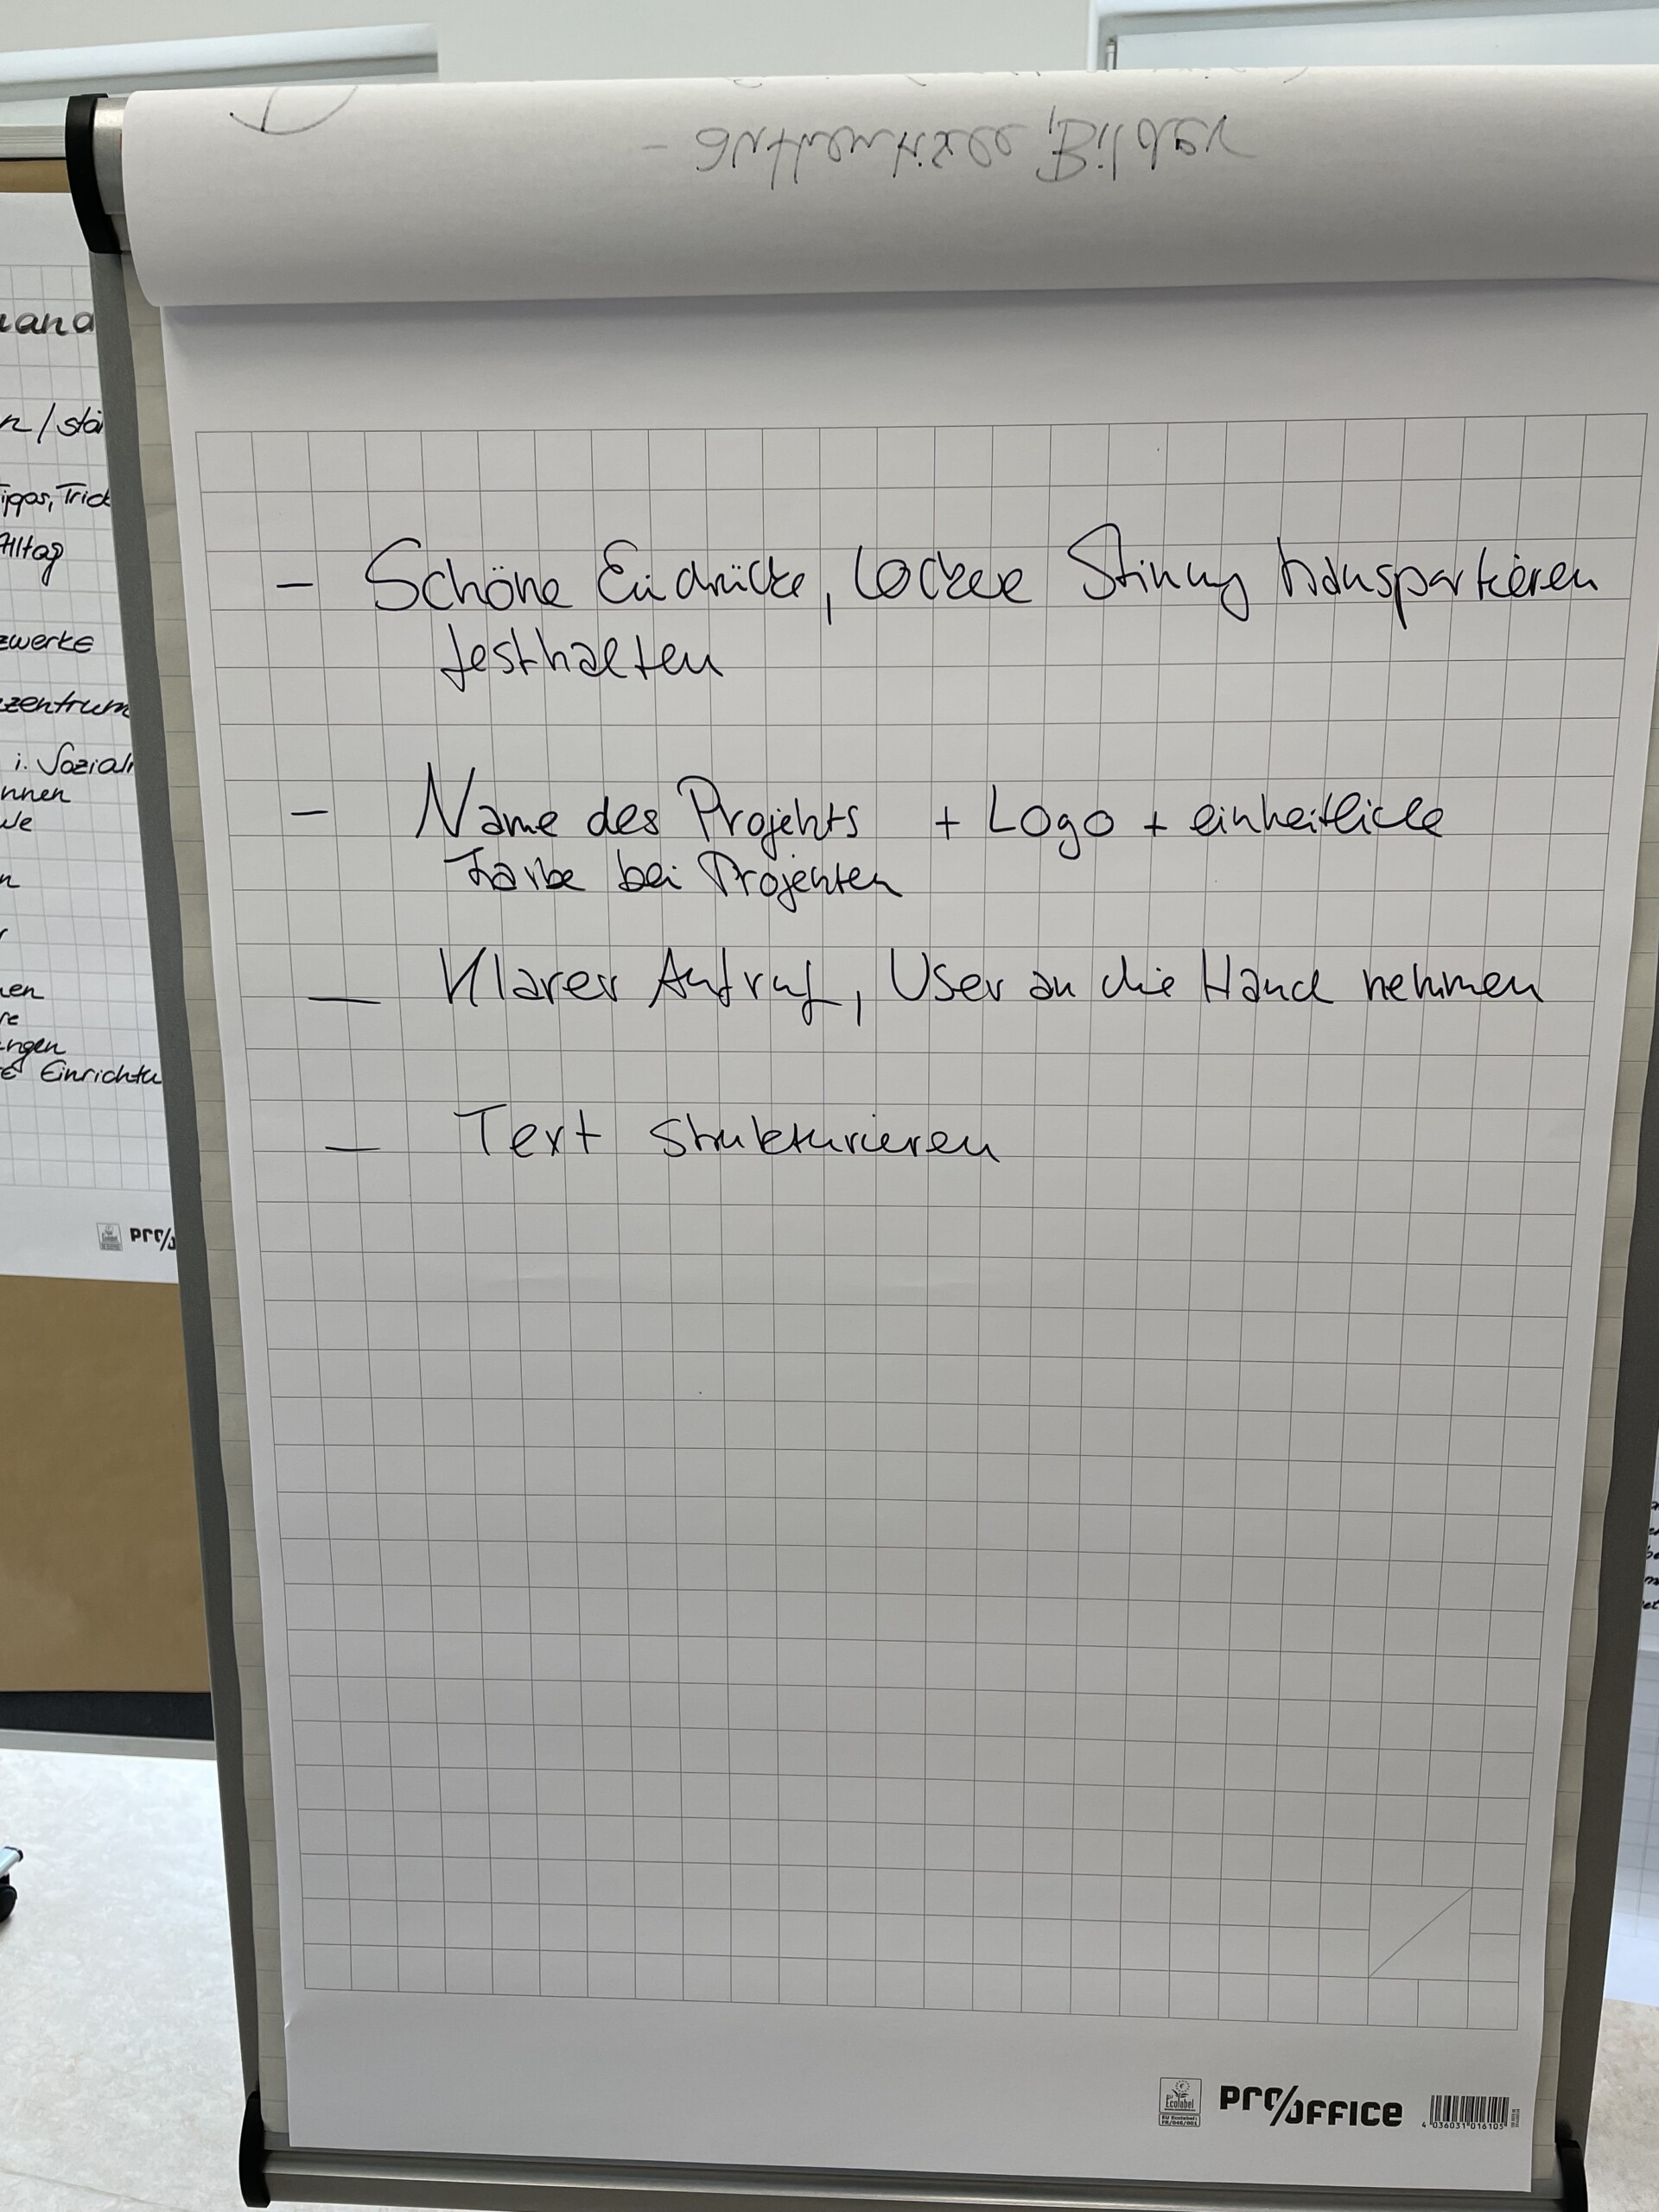 - authentische Bilder
- Schöne Eindrücke, lockere Stimmung transportieren
festhalten
- Name des Projekts + Logo + einheitliche
Farbe bei Projekten
- Klarer Aufruf, User an die Hand nehmen
- Text strukturieren
n / stä
Tipps, Trick
Alltag
zwerke
zentrum
i. Sozialr
nnen
we
n
r
en
re
ungen
E Einrichtu
pro/
EU Ecolabel
EU Ecolabel:
FR/046/001
pro/office
4 036031 016105